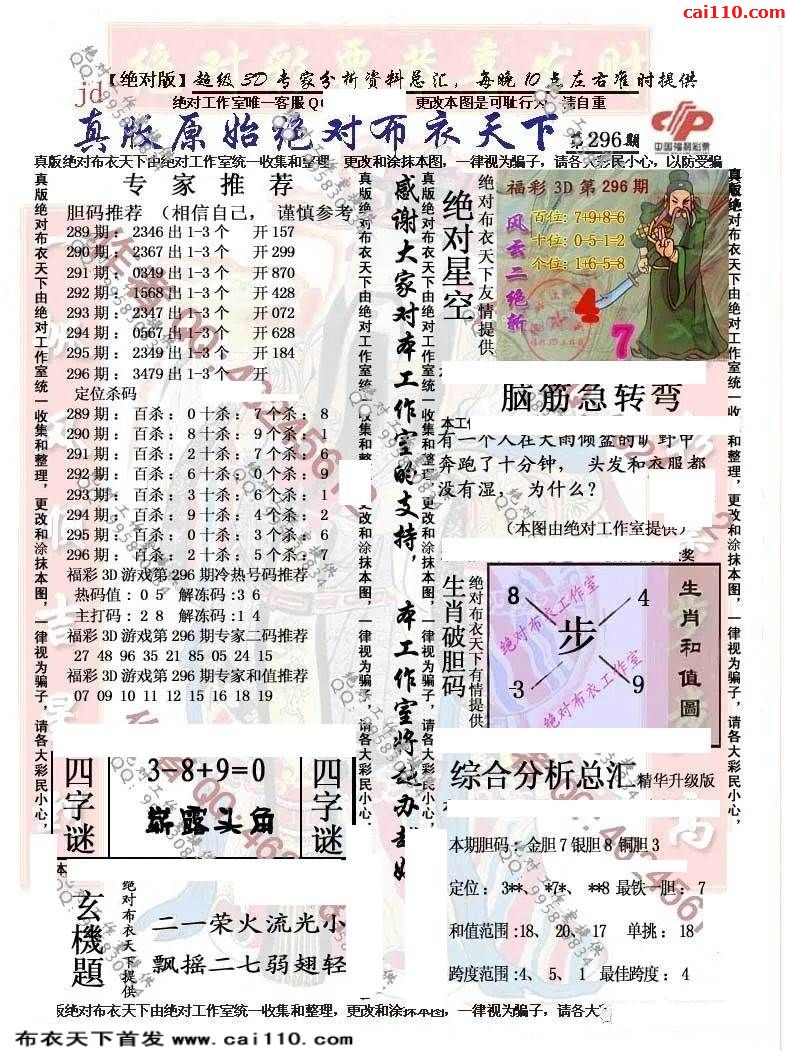 cai110.com
【绝对版】超级3D专家分析资料总汇，每晚10点左右准时提供
jd
绝对工作室唯一客服Q
更改本图是可耻行为，请自重
真版原始绝对布衣天下
第296期
中国福利彩票
真版绝对布衣天下由绝对工作室统一收集和整理，更改和涂抹本图，一律视为骗子，请各大彩民小心，以防受骗
真版绝对布衣天下由绝对工作室统一收集和整理，更改和涂抹本图，一律视为骗子，请各大彩民小心，
专家推荐
胆码推荐（相信自己，谨慎参考
289期：2346出1-3个 开157
290期：2367出1-3个 开299
291期：0349出1-3个 开870
292期：1568出1-3个 开428
293期：2347出1-3个 开072
294期：0567出1-3个 开628
295期：2349出1-3个 开184
296期：3479出1-3个 开
定位杀码
289期：百杀：0十杀：7个杀：8
290期：百杀：8十杀：9个杀：1
291期：百杀：2十杀：7个杀：6
292期：百杀：6十杀：0个杀：9
293期：百杀：3十杀：6个杀：1
294期：百杀：9十杀：4个杀：2
295期：百杀：0十杀：3个杀：6
296期：百杀：2十杀：5个杀：7
福彩3D游戏第296期冷热号码推荐
热码值：05 解冻码:36
主打码：28 解冻码:14
福彩3D游戏第296期专家二码推荐
27 48 96 35 21 85 05 24 15
福彩3D游戏第296期专家和值推荐
07 09 10 11 12 15 16 18 19
感谢大家对本工作室的支持，本工作室将越办越好
绝对星空
绝对布衣天下友情提供
福彩3D第296期
风云二绝斩
百位：7+9+8-6
十位：0-5-1-2
个位：1+6-5-8
4
7
脑筋急转弯
有一个人在大雨倾盆的旷野中
奔跑了十分钟，头发和衣服都
没有湿，为什么？
（本图由绝对工作室提供）
生肖破胆码
绝对布衣天下有情提供
8
4
步
3
9
绝对布衣工作室
绝对布衣工作室
生肖和值圖
四字谜
3-8+9=0
崭露头角
四字谜
玄機題
绝对布衣天下提供
二一荣火流光小
飘摇二七弱翅轻
综合分析总汇精华升级版
本期胆码：金胆7银胆8铜胆3
定位：3**、*7*、**8 最铁一胆：7
和值范围:18、20、17 单挑：18
跨度范围:4、5、1 最佳跨度：4
版绝对布衣天下由绝对工作室统一收集和整理，更改和涂抹本图，一律视为骗子，请各大
布衣天下首发 www.cai110.com